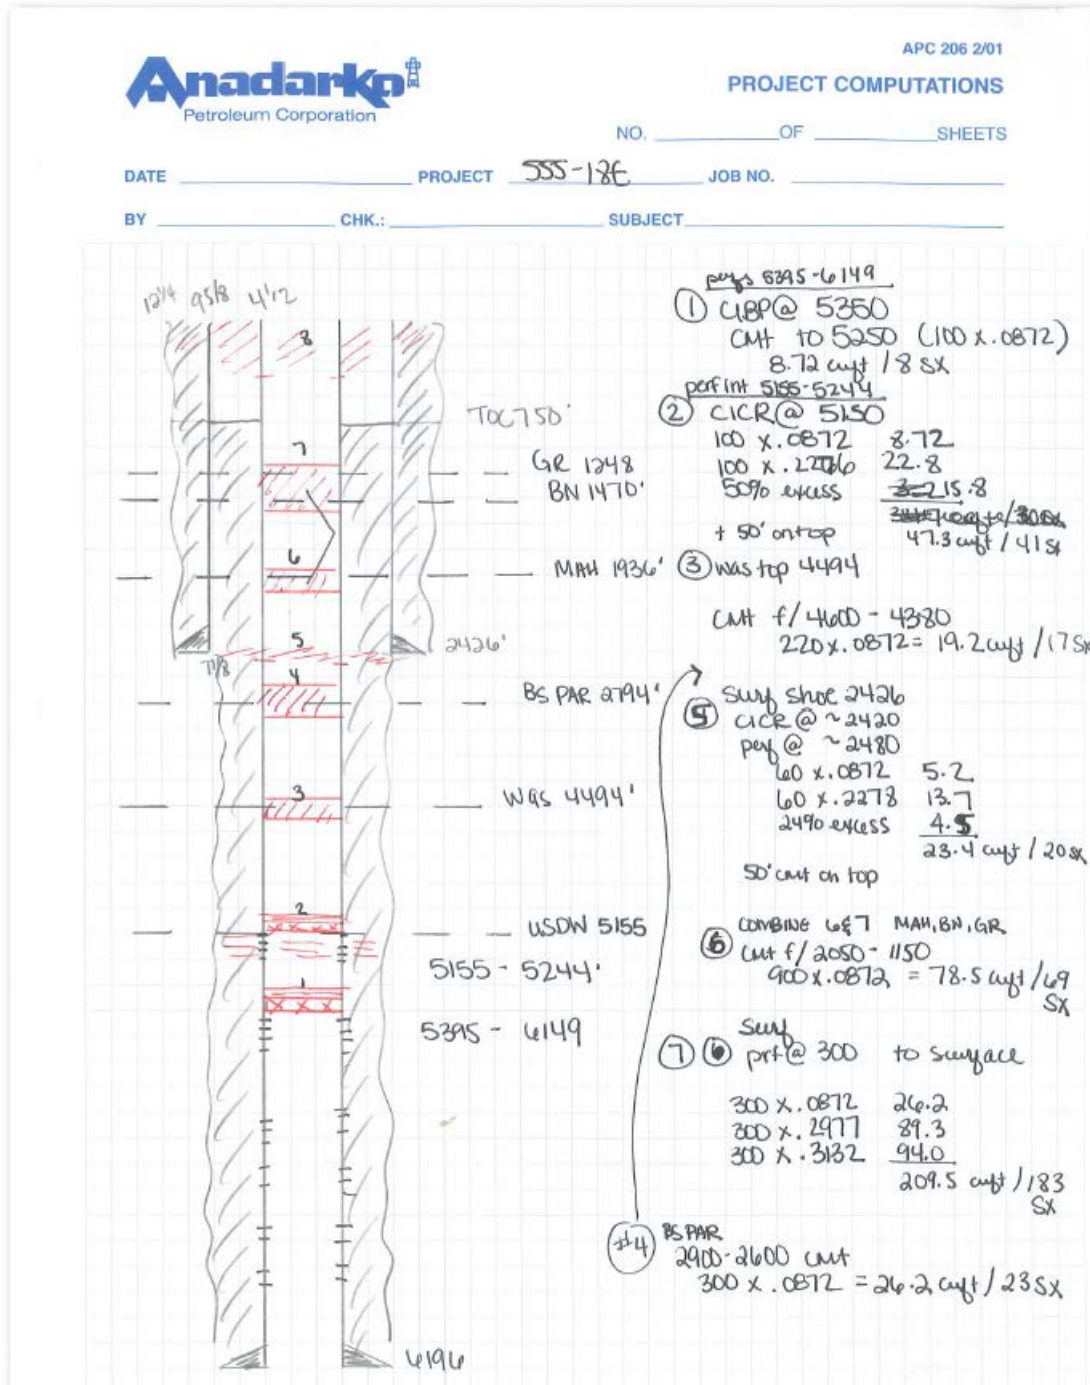 APC 206 2/01
Anadarko
Petroleum Corporation
PROJECT COMPUTATIONS
NO. OF SHEETS
DATE PROJECT 555-18E JOB NO.
BY CHK.: SUBJECT
12 1/4 9 5/8 4 1/2
8
TOC 750'
7
GR 1248
BN 1470'
6
MAH 1936'
5
2426'
7 7/8
4
BS PAR 2794'
3
Was 4494'
2
USDW 5155
5155 - 5244'
1
5395 - 6149
6196
perfs 5395-6149
① CIBP @ 5350
CMt to 5250 (100 x .0872)
8.72 cuft / 8 sx
perf int 5155-5244
② CICR @ 5150
100 x .0872 8.72
100 x .2276 22.8
50% excess 15.8
47.3 cuft / 41 sx
+ 50' on top
③ Was top 4494
CMt f/ 4600 - 4380
220 x .0872 = 19.2 cuft / 17 sx
⑤ Surf shoe 2426
CICR @ ~2420
perf @ ~2480
60 x .0872 5.2
60 x .2278 13.7
24% excess 4.5
23.4 cuft / 20 sx
50' cmt on top
COMBINE 6 & 7 MAH, BN, GR
⑥ CMt f/ 2050 - 1150
900 x .0872 = 78.5 cuft / 69
SX
Surf
⑦ prf @ 300 to surface
300 x .0872 26.2
300 x .2977 89.3
300 x .3132 94.0
209.5 cuft / 183
SX
#4 BS PAR
2900-2600 CMt
300 x .0872 = 26.2 cuft / 23 SX